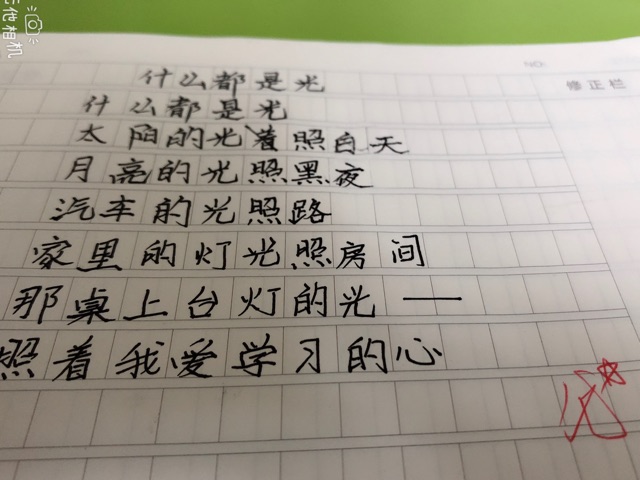 什么都是光
什么都是光
太阳的光着照白天
月亮的光照黑夜
汽车的光照路
家里的灯光照房间
那桌上台灯的光——
照着我爱学习的心
NO:
修正栏
优
相机